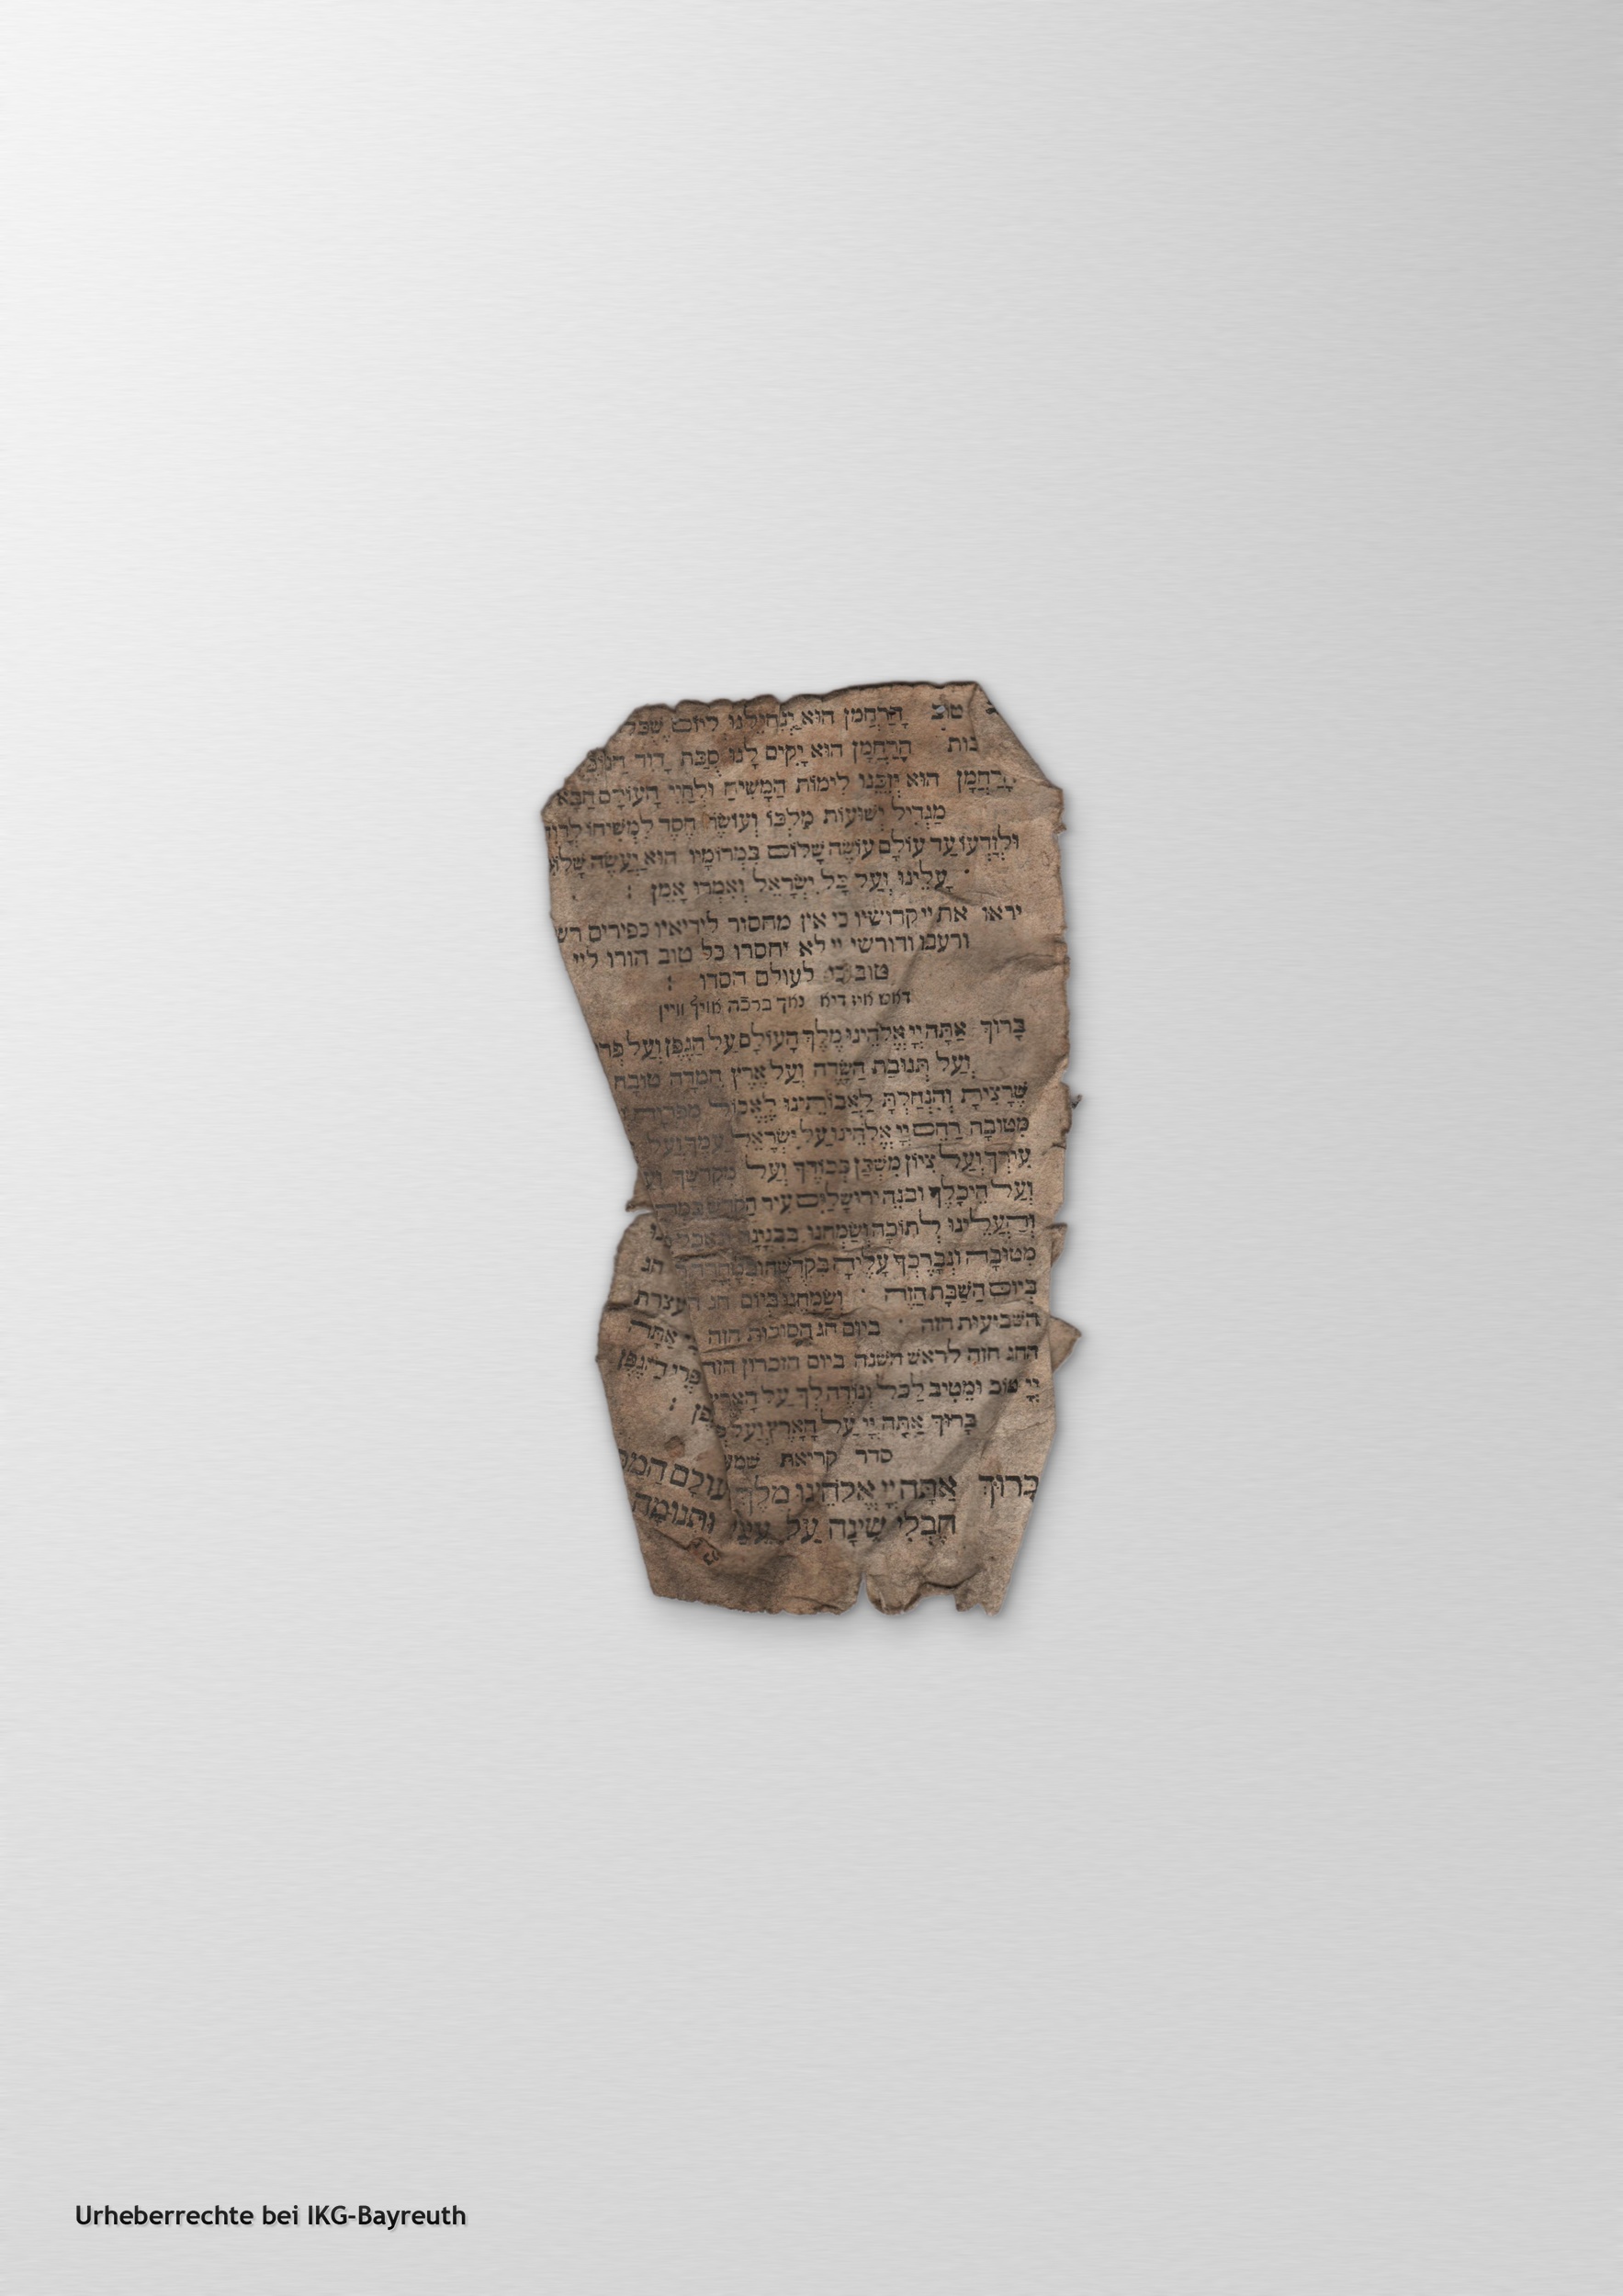 טוב הָרַחֲמָן הוּא יַנְחִילֵנוּ לְיוֹם
נות הָרַחֲמָן הוּא יָקִים לָנוּ סֻכַּת דָּוִד
הָרַחֲמָן הוּא יְזַכֵּנוּ לִימוֹת הַמָּשִׁיחַ וּלְחַיֵּי הָעוֹלָם הַבָּא
מַגְדִיל יְשׁוּעוֹת מַלְכּוֹ וְעוֹשֶׂה חֶסֶד לִמְשִׁיחוֹ
וּלְזַרְעוֹ עַד עוֹלָם עוֹשֶׂה שָׁלוֹם בִּמְרוֹמָיו הוּא יַעֲשֶׂה
עָלֵינוּ וְעַל כָּל יִשְׂרָאֵל וְאִמְרוּ אָמֵן :
יראו את יי קדושיו כי אין מחסור ליריאיו כפירים
ורעבו ודורשי יי לא יחסרו כל טוב הודו ליי
טוב כי לעולם חסדו :
נאך ברכה
בָּרוּךְ אַתָּה יְיָ אֱלֹהֵינוּ מֶלֶךְ הָעוֹלָם עַל הַגֶּפֶן וְעַל
וְעַל תְּנוּבַת הַשָּׂדֶה וְעַל אֶרֶץ חֶמְדָּה טוֹבָה
שֶׁרָצִיתָ וְהִנְחַלְתָּ לַאֲבוֹתֵינוּ לֶאֱכוֹל
מִטּוּבָהּ רַחֵם יְיָ אֱלֹהֵינוּ עַל יִשְׂרָאֵל עַמֶּךָ וְעַל
עִירֶךָ וְעַל צִיּוֹן מִשְׁכַּן כְּבוֹדֶךָ וְעַל
וְעַל הֵיכָלֶךָ וּבְנֵה יְרוּשָׁלַיִם עִיר
וְהַעֲלֵינוּ לְתוֹכָהּ וְשַׂמְּחֵנוּ בְּבִנְיָנָהּ
מִטּוּבָהּ וּנְבָרֶכְךָ עָלֶיהָ בִּקְדֻשָּׁה חג
בְּיוֹם הַשַּׁבָּת הַזֶּה · וְשַׂמְּחֵנוּ בְּיוֹם חג העצרת
השבועות הזה · ביום חג הסוכות הזה אתה
החג הזה לראש השנה ביום הזכרון הזה פְּרִי הַגֶּפֶן
יְיָ טוֹב וּמֵטִיב לַכֹּל וְנוֹדֶה לְךָ עַל הָאָרֶץ :
בָּרוּךְ אַתָּה יְיָ עַל הָאָרֶץ וְעַל
סדר קריאת שמע
בָּרוּךְ אַתָּה יְיָ אֱלֹהֵינוּ מֶלֶךְ עוֹלָם
חֶבְלֵי שֵׁינָה עַל עֵינַי וּתְנוּמָה
Urheberrechte bei IKG-Bayreuth